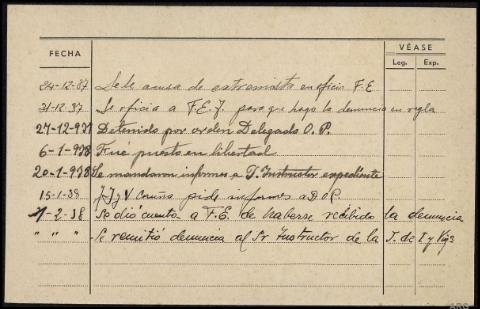 FECHA VÉASE
Leg. Exp.
24-12-37 Se le acusa de extremista en oficio F.E.
31-12-37 Se oficia a F.E.J. para que haga la denuncia en regla
27-12-937 Detenido por orden Delegado O.P.
6-1-938 Fué puesto en libertad
20-1-938 Se mandaron informes a J. Instructor expediente
15-1-38 J.I y V Coruña pide informes a D.O.P.
1-2-38 Se dió cuenta a F.E. de haberse recibido la denuncia
" " " Se remitió denuncia al Sr Instructor de la J. de I y Vig